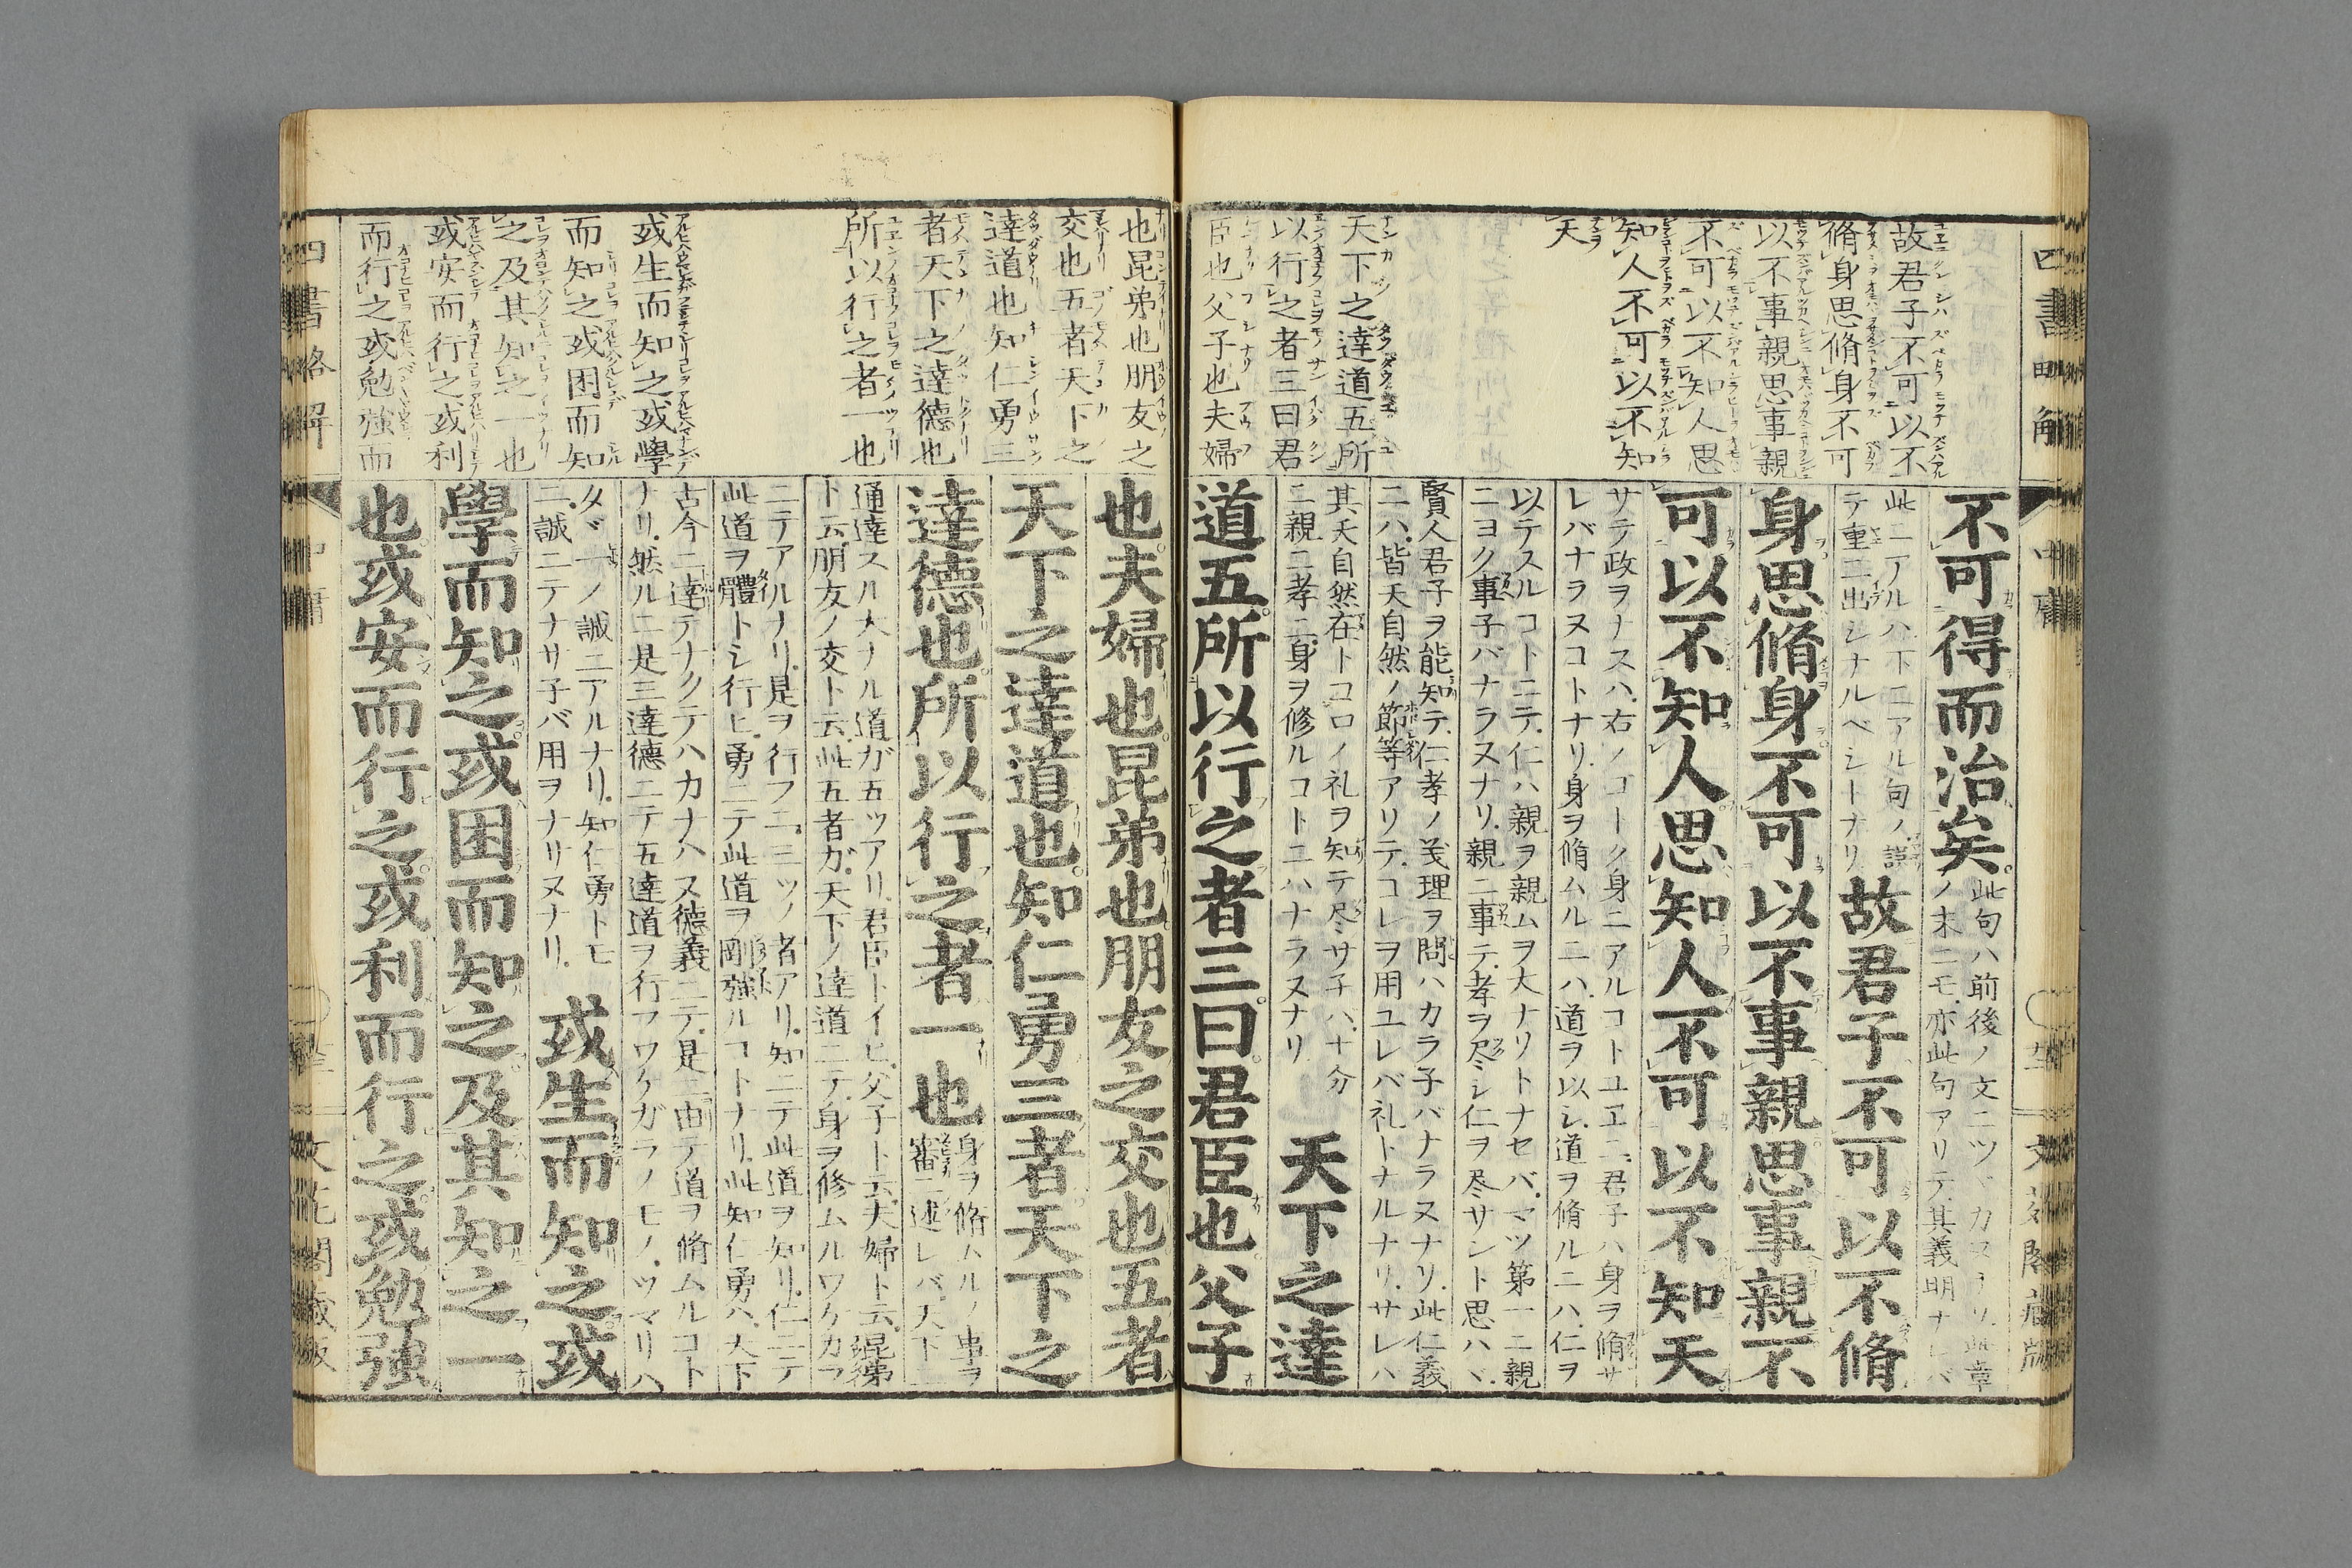 四書略解
中庸
故君子不可以不
脩身思脩身不可
以不事親思事親
不可以不知人思
知人不可以不知
天
天下之達道五所
以行之者三曰君
臣也父子也夫婦
不可得而治矣
此句ハ前後ノ文ニツヾカズ
ノ末ニモ亦此句アリテ其義明ナレバ
此ニアルハ下ニアル句ノ誤
テ重ニ出シナルベシトナリ
故君子不可以不脩
身思脩身不可以不事親思事親不
可以不知人思知人不可以不知天
サテ政ヲナスハ右ノゴトク身ニアルコトユエニ君子ハ身ヲ脩サ
レバナラヌコトナリ身ヲ脩ムルニハ道ヲ以シ道ヲ脩ルニハ仁ヲ
以テスルコトニテ仁ハ親ヲ親ムヲ大ナリトナセバマヅ第一ニ親
ニヨク事子バナラヌナリ親ニ事テ孝ヲ尽シ仁ヲ尽サント思ハヾ
賢人君子ヲ能知テ仁孝ノ義理ヲ問ハカラ子バナラヌナリ此仁義
ニハ皆天自然ノ節等アリテコレヲ用ユレバ礼トナルナリサレハ
其天自然在トコロノ礼ヲ知テ尽サ子ハ十分
ニ親ニ孝ニ身ヲ修ルコトニハナラヌナリ
天下之達
道五所以行之者三曰君臣也父子
也昆弟也朋友之
交也五者天下之
達道也知仁勇三
者天下之達德也
所以行之者一也
或生而知之或學
而知之或困而知
之及其知之一也
或安而行之或利
而行之或勉強而
也夫婦也昆弟也朋友之交也五者
天下之達道也知仁勇三者天下之
達德也所以行之者一也
身ヲ脩ムルノ事ヲ
審ニ述レバ天下ニ
通達スル大ナル道ガ五ツアリ君臣トイヒ父子ト云夫婦ト云昆弟
ト云朋友ノ交ト云此五者ガ天下ノ達道ニテ身ヲ修ムルワケカラ
ニテアルナリ是ヲ行フニ三ツノ者アリ知ニテ此道ヲ知リ仁ニテ
此道ヲ體トシ行ヒ勇ニテ此道ヲ剛強ルコトナリ此知仁勇ハ天下
古今ニ達テナクテハカナハヌ德義ニテ是ニ由テ道ヲ脩ムルコト
ナリ然ルニ是三達德ニテ五達道ヲ行フワケガラノモノツマリハ
タヾ一ノ誠ニアルナリ知仁勇トモ
ニ誠ニテナサ子バ用ヲナリヌナリ
或生而知之或
學而知之或困而知之及其知之一
也或安而行之或利而行之或勉強
四書略解